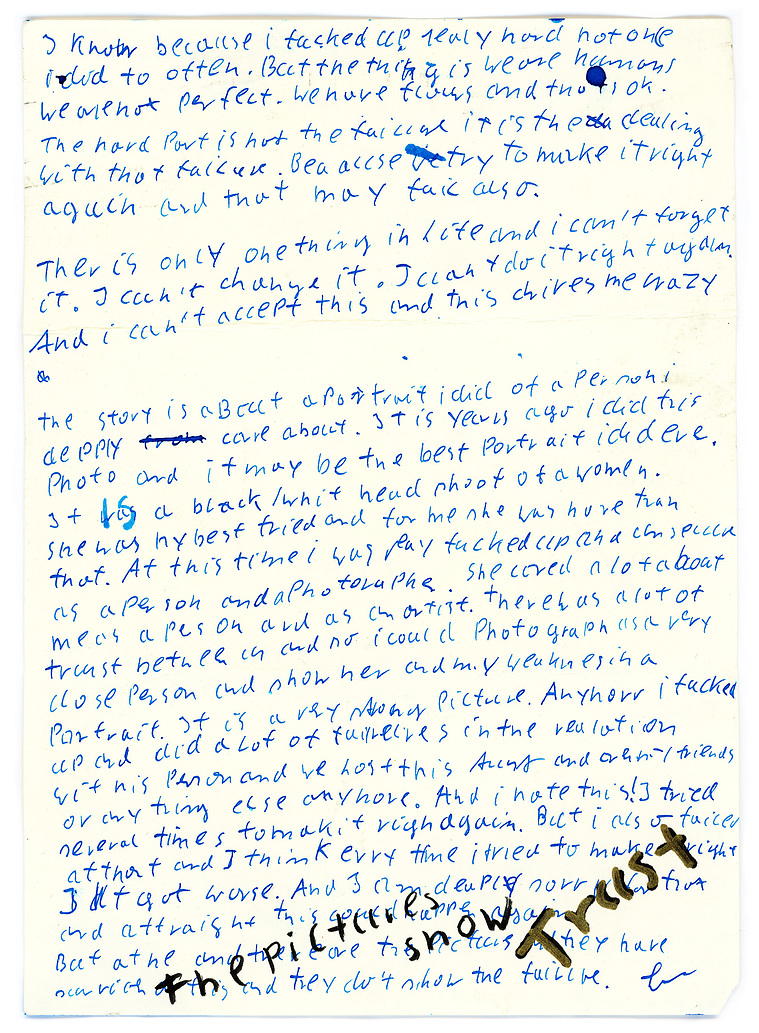 I know because i fucked up realy hard not one
i did to often. But the thing is we are humans
we are not perfect. we have flaws and that is ok.
The hard Part is not the failure it is the dealing
with that failure. Beacuse try to make it right
again and that may fail also.
Ther is only one thing in Life and i can't forget
it. I can't change it. I can't do it right again.
And i can't accept this and this drives me crazy
the story is aBout a Portrait i did of a Person i
depply care about. It is years ago i did this
Photo and it may be the best Portrait i did ever.
It is a black/whit head shoot of a women.
she was my best fried and for me she was more than
that. At this time i was fucked up and unsecure
as a Person and a Photographe. she cared a lot about
me as a Person and as an artist. there was a lot of
trust between us and so i could Photograph as a very
close Person and show her and my weaknes in a
Portrait. It is a very strong Picture. Anyhow i fucked
up and did a lot of failures in the realation
wit his Person and we lost this trust and aren't friends
or any thing else anymore. And i hate this! I tried
several times to mak it right again. But i also failed
at that and I think erry time i tried to make right
I it got worse. And I am deaply sorry for that
and affraight this could happen again
But at the end there are the Pictures they have
and they don't show the failure.
the pictures show Trust